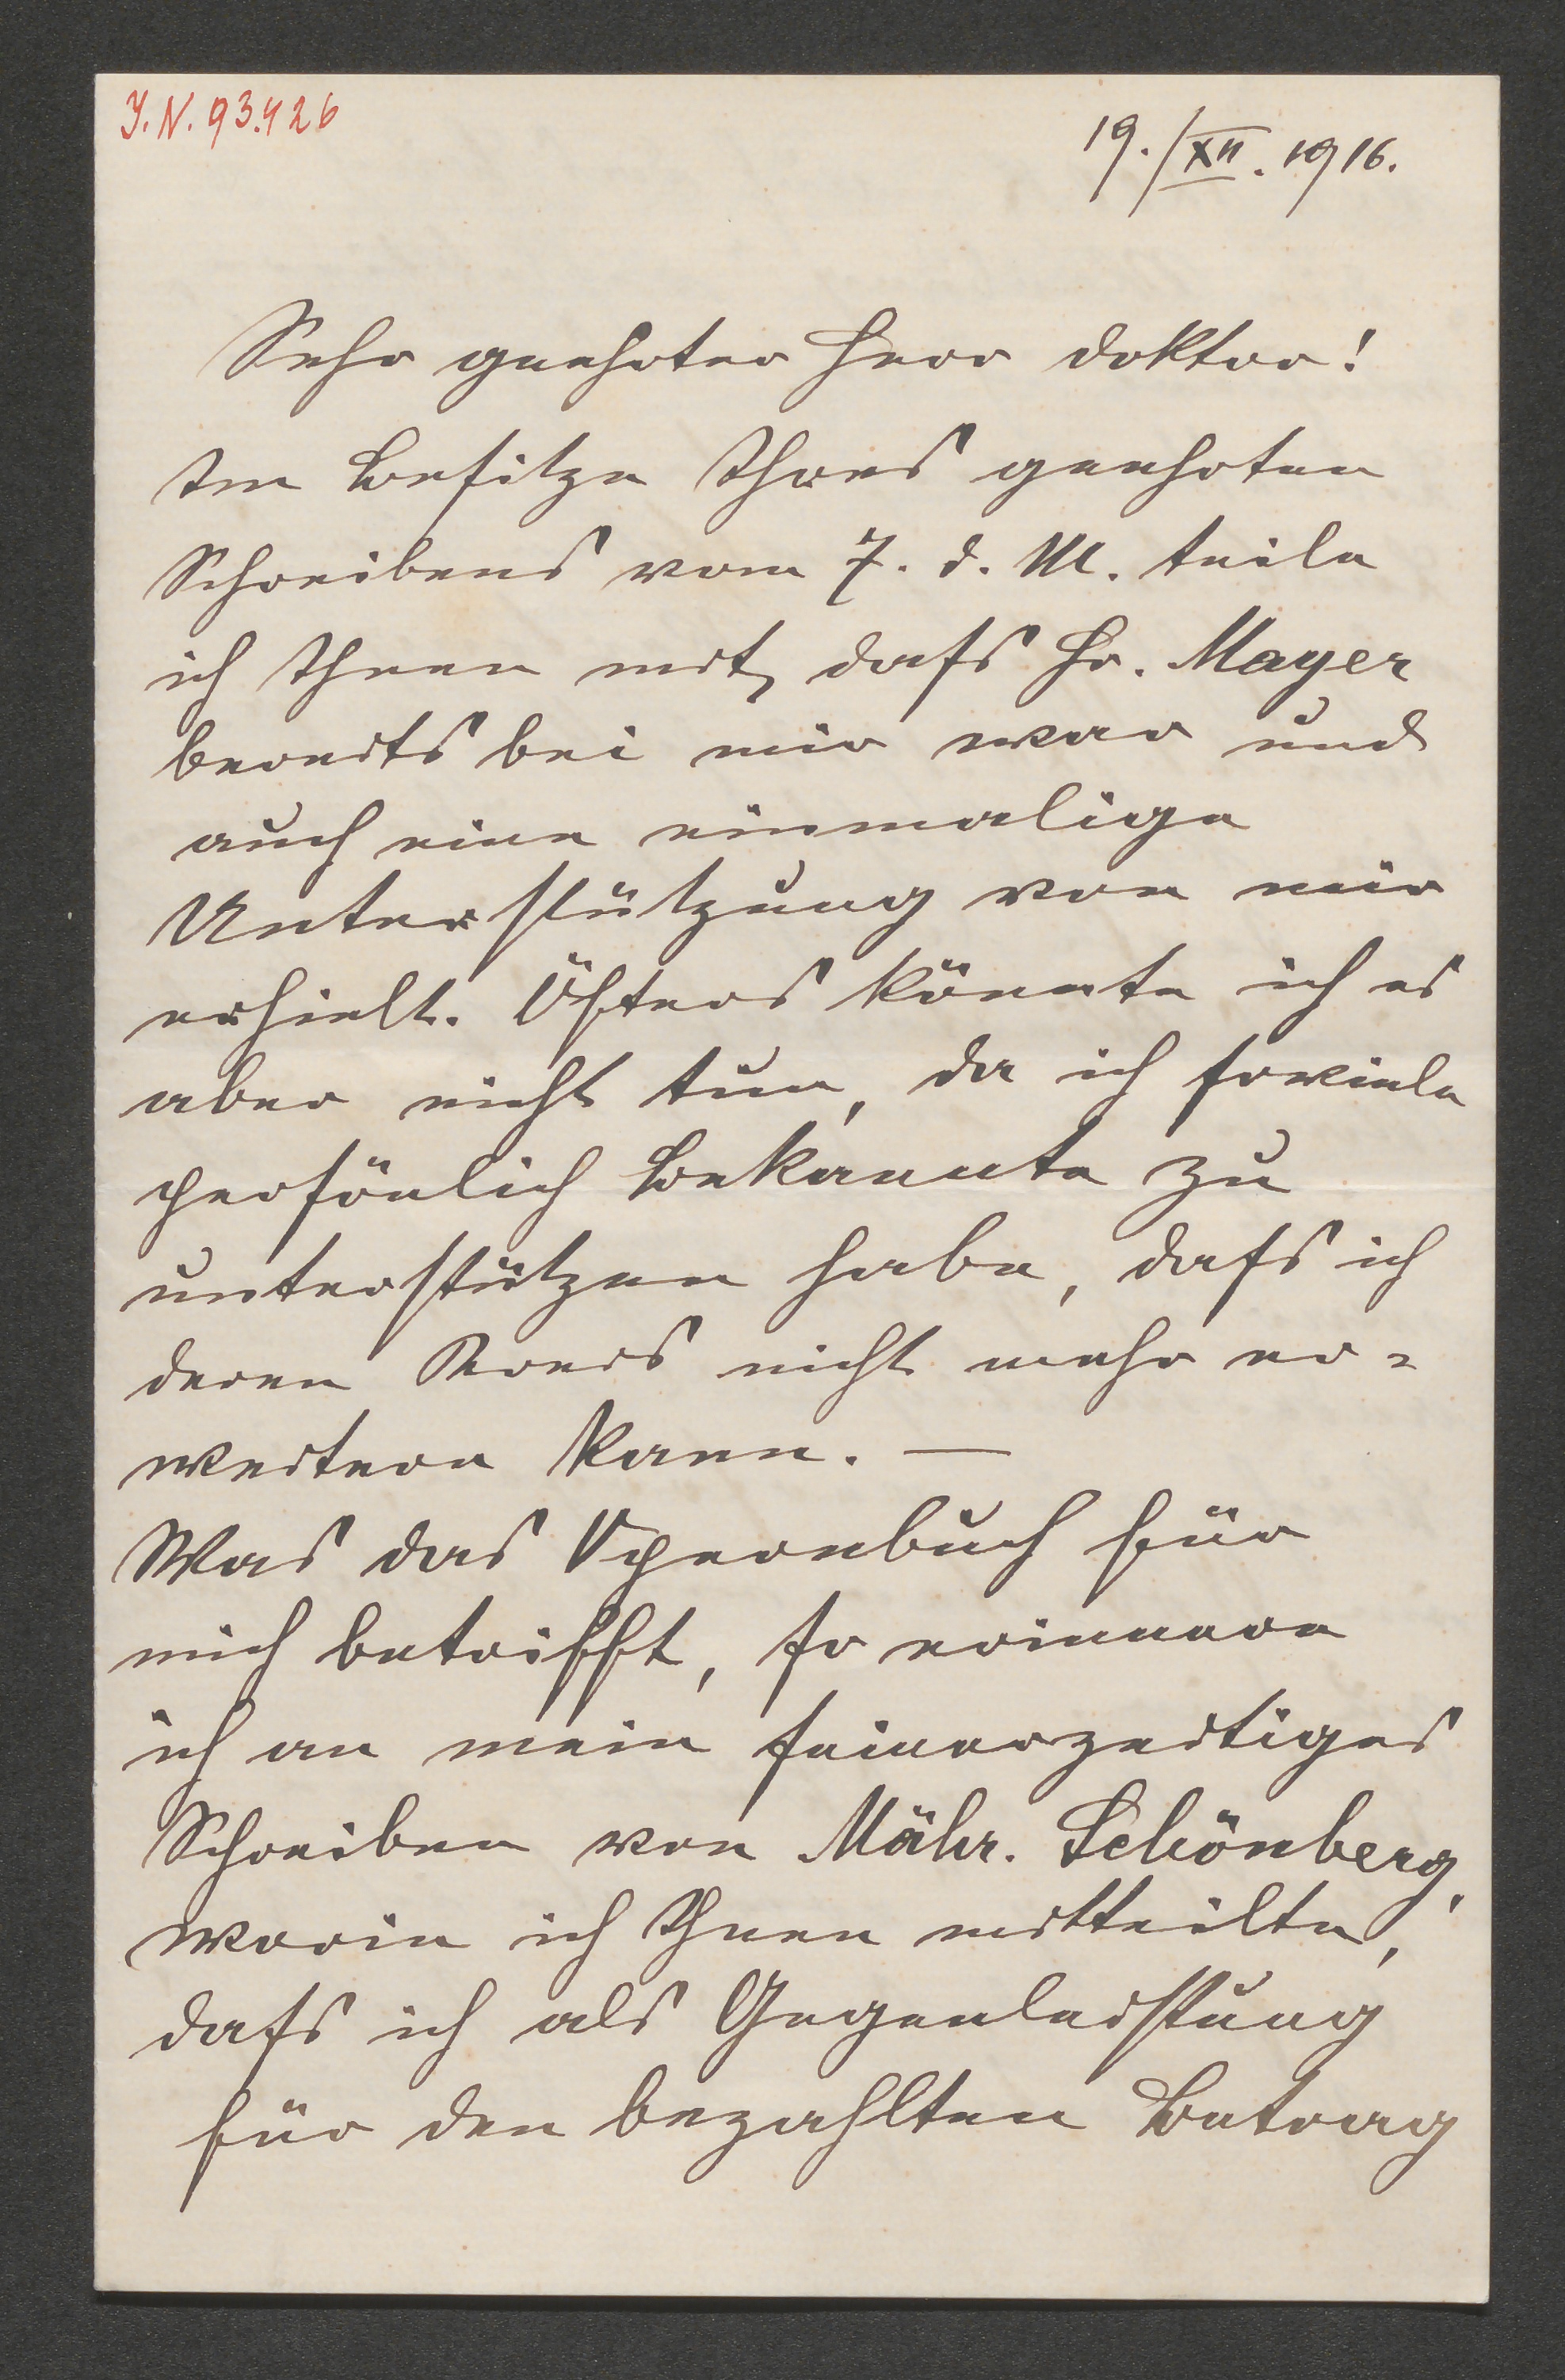 J.N. 93.426
19./XII. 1916.
Sehr geehrter Herr Doktor!
Im Besitze Ihres geehrten
Schreibens vom 7. d. M. teile
ich Ihnen mit, dass Hr. Mayer
bereits bei mir war und
auch eine einmalige
Unterstützung von mir
erhielt. Öfters könnte ich es
aber nicht tun, da ich soviele
persönlich Bekannte zu
unterstützen habe, dass ich
deren Kreis nicht mehr er-
weitern kann. —
Was das Opernbuch für
mich betrifft, so erinnere
ich an mein seinerzeitiges
Schreiben von Mähr. Schönberg,
worin ich Ihnen mitteilte,
dass ich als Gegenleistung
für den bezahlten Betrag